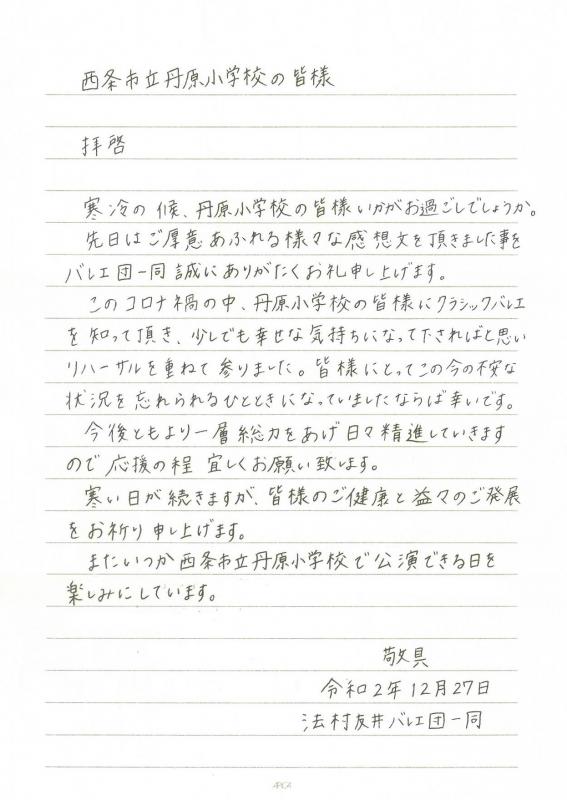 西条市立丹原小学校の皆様
拝啓
寒冷の候、丹原小学校の皆様いかがお過ごしでしょうか。
先日はご厚意あふれる様々な感想文を頂きました事を
バレエ団一同誠にありがたくお礼申し上げます。
このコロナ禍の中、丹原小学校の皆様にクラシックバレエ
を知って頂き、少しでも幸せな気持ちになって下さればと思い
リハーサルを重ねて参りました。皆様にとってこの今の不安な
状況を忘れられるひとときになっていましたならば幸いです。
今後ともより一層総力をあげ日々精進していきます
ので応援の程宜しくお願い致します。
寒い日が続きますが、皆様のご健康と益々のご発展
をお祈り申し上げます。
またいつか西条市立丹原小学校で公演できる日を
楽しみにしています。
敬具
令和2年12月27日
法村友井バレエ団一同
APICA